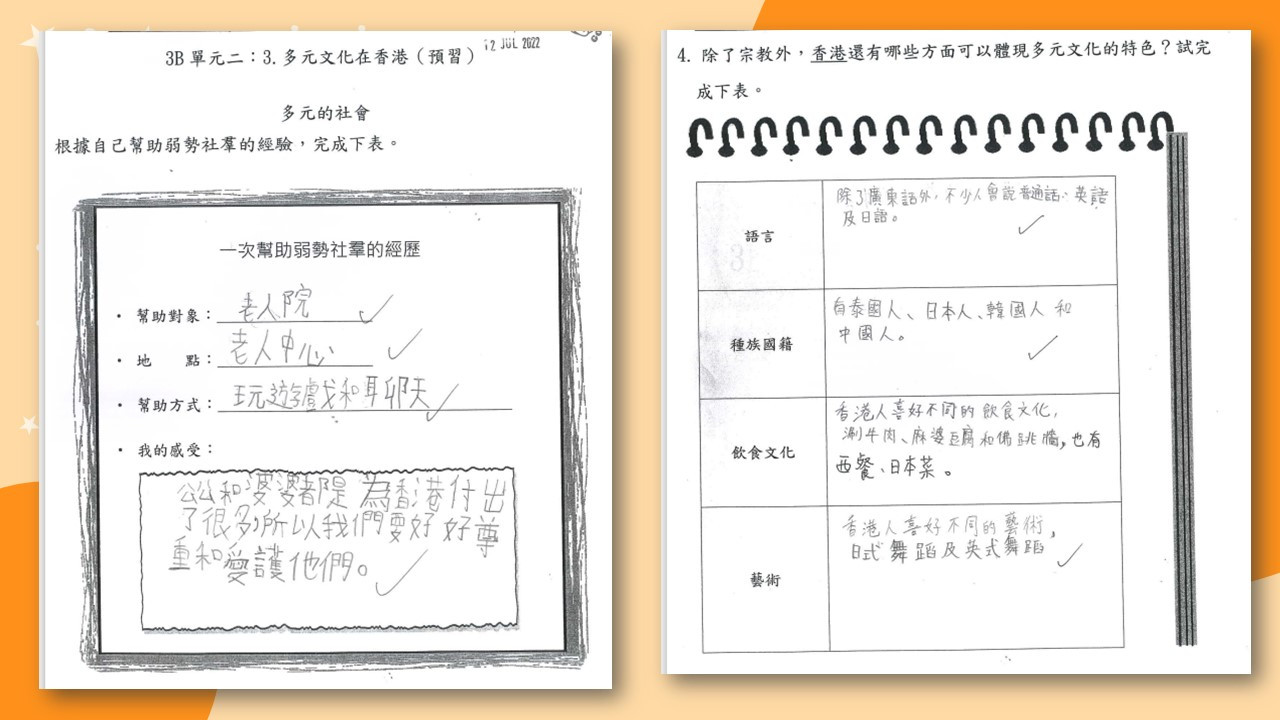 3B 單元二：3. 多元文化在香港（預習）
12 JUL 2022
多元的社會
根據自己幫助弱勢社羣的經驗，完成下表。
一次幫助弱勢社羣的經歷
• 幫助對象：老人院
• 地　　點：老人中心
• 幫助方式：玩遊戲和聊天
• 我的感受：
公公和婆婆都是為香港付出
了很多，所以我們要好好尊
重和愛護他們。
4. 除了宗教外，香港還有哪些方面可以體現多元文化的特色？試完
成下表。
語言
除了廣東話外，不少人會說普通話、英語
及日語。
種族國籍
有泰國人、日本人、韓國人 和
中國人。
飲食文化
香港人喜好不同的飲食文化，
涮牛肉、麻婆豆腐和佛跳牆，也有
西餐、日本菜。
藝術
香港人喜好不同的藝術，
日式舞蹈及英式舞蹈